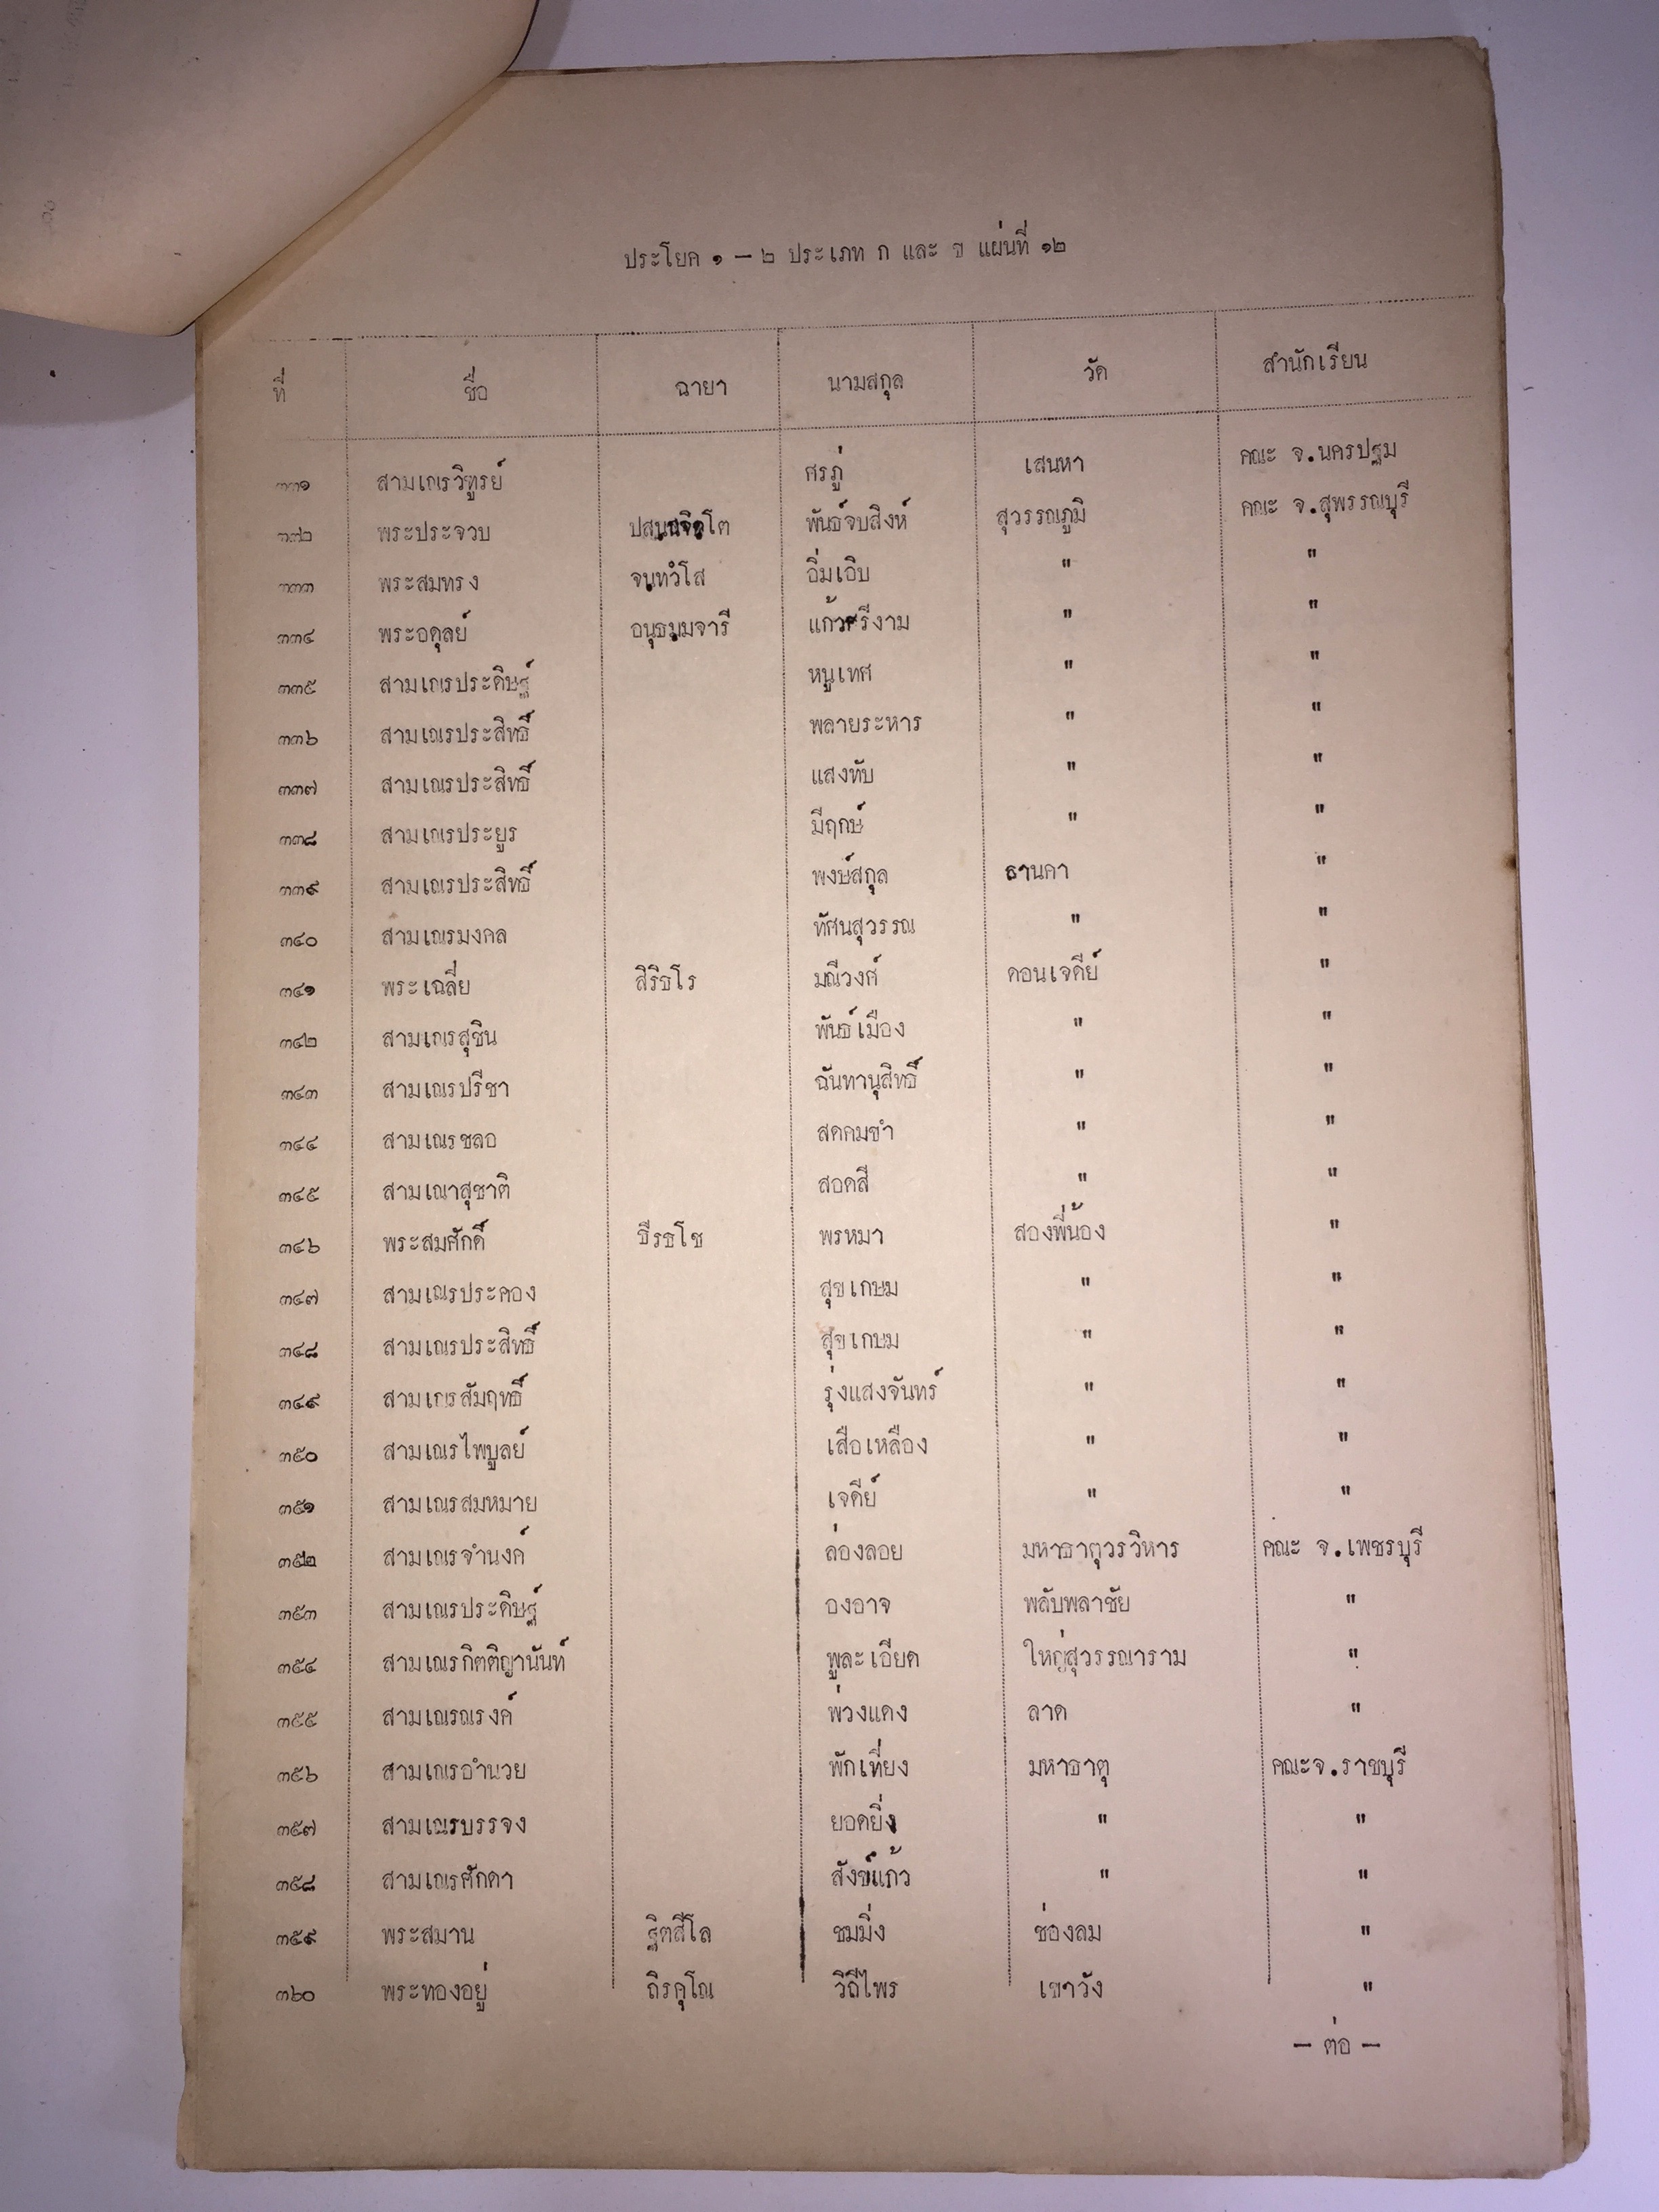 ประโยค ๑ - ๒ ประเภท ก และ ข แผ่นที่ ๑๒
ที่ ชื่อ ฉายา นามสกุล วัด สำนักเรียน
๓๓๑ สามเณรวิฑูรย์ ศรภู่ เสนหา คณะ จ.นครปฐม
๓๓๒ พระประจวบ พันธ์จบสิงห์ สุวรรณภูมิ คณะ จ.สุพรรณบุรี
๓๓๓ พระสมทรง จนฺทวํโส อิ่มเอิบ " "
๓๓๔ พระอดุลย์ อนุธมฺมจารี แก้วศรีงาม " "
๓๓๕ สามเณรประดิษฐ์ หนูเทศ " "
๓๓๖ สามเณรประสิทธิ์ พลายระหาร " "
๓๓๗ สามเณรประสิทธิ์ แสงทับ " "
๓๓๘ สามเณรประยูร มีฤกษ์ " "
๓๓๙ สามเณรประสิทธิ์ พงษ์สกุล ธานดา "
๓๔๐ สามเณรมงคล ทัศนสุวรรณ " "
๓๔๑ พระเฉลี่ย สิริธโร มณีวงศ์ ดอนเจดีย์ "
๓๔๒ สามเณรสุชิน พันธ์เมือง " "
๓๔๓ สามเณรปรีชา ฉันทานุสิทธิ์ " "
๓๔๔ สามเณรชลอ สดคมขำ " "
๓๔๕ สามเณาสุชาติ สอดสี " "
๓๔๖ พระสมศักดิ์ ธีรธโช พรหมา สองพี่น้อง "
๓๔๗ สามเณรประคอง สุขเกษม " "
๓๔๘ สามเณรประสิทธิ์ สุขเกษม " "
๓๔๙ สามเณรสัมฤทธิ์ รุ่งแสงจันทร์ " "
๓๕๐ สามเณรไพบูลย์ เสือเหลือง " "
๓๕๑ สามเณรสมหมาย เจดีย์ " "
๓๕๒ สามเณรจำนงค์ ล่องลอย มหาธาตุวรวิหาร คณะ จ.เพชรบุรี
๓๕๓ สามเณรประดิษฐ์ องอาจ พลับพลาชัย "
๓๕๔ สามเณรกิตติญานันท์ พูละเอียด ใหญ่สุวรรณาราม "
๓๕๕ สามเณรณรงค์ พ่วงแดง ลาด "
๓๕๖ สามเณรอำนวย พักเที่ยง มหาธาตุ คณะจ.ราชบุรี
๓๕๗ สามเณรบรรจง ยอดยิ่ง " "
๓๕๘ สามเณรศักดา สังข์แก้ว " "
๓๕๙ พระสมาน ฐิตสีโล ชมมิ่ง ช่องลม "
๓๖๐ พระทองอยู่ ถิรคุโณ วิถีไพร เขาวัง "
- ต่อ -